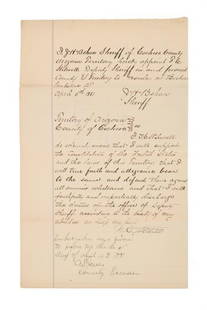 I J H Behan Sheriff of Cochise County
Arizona Territory hereby appoint F. C.
Stilwell Deputy Sheriff in and for said
County & Territory to
April 1881
J H Behan
Sheriff
Territory of Arizona
County of Cochise
I F C Stilwell
do solemnly swear that I will support
the Constitution of the United States
and the laws of this Territory that I
will true faith and allegiance bear
to the same and defend them against
all enemies whatsoever and that I will
faithfully and impartially discharge
the duties of the office of Deputy
Sheriff according to the best of my
abilities so help me God
Subscribed and sworn
to before me this
day of April
County Recorder